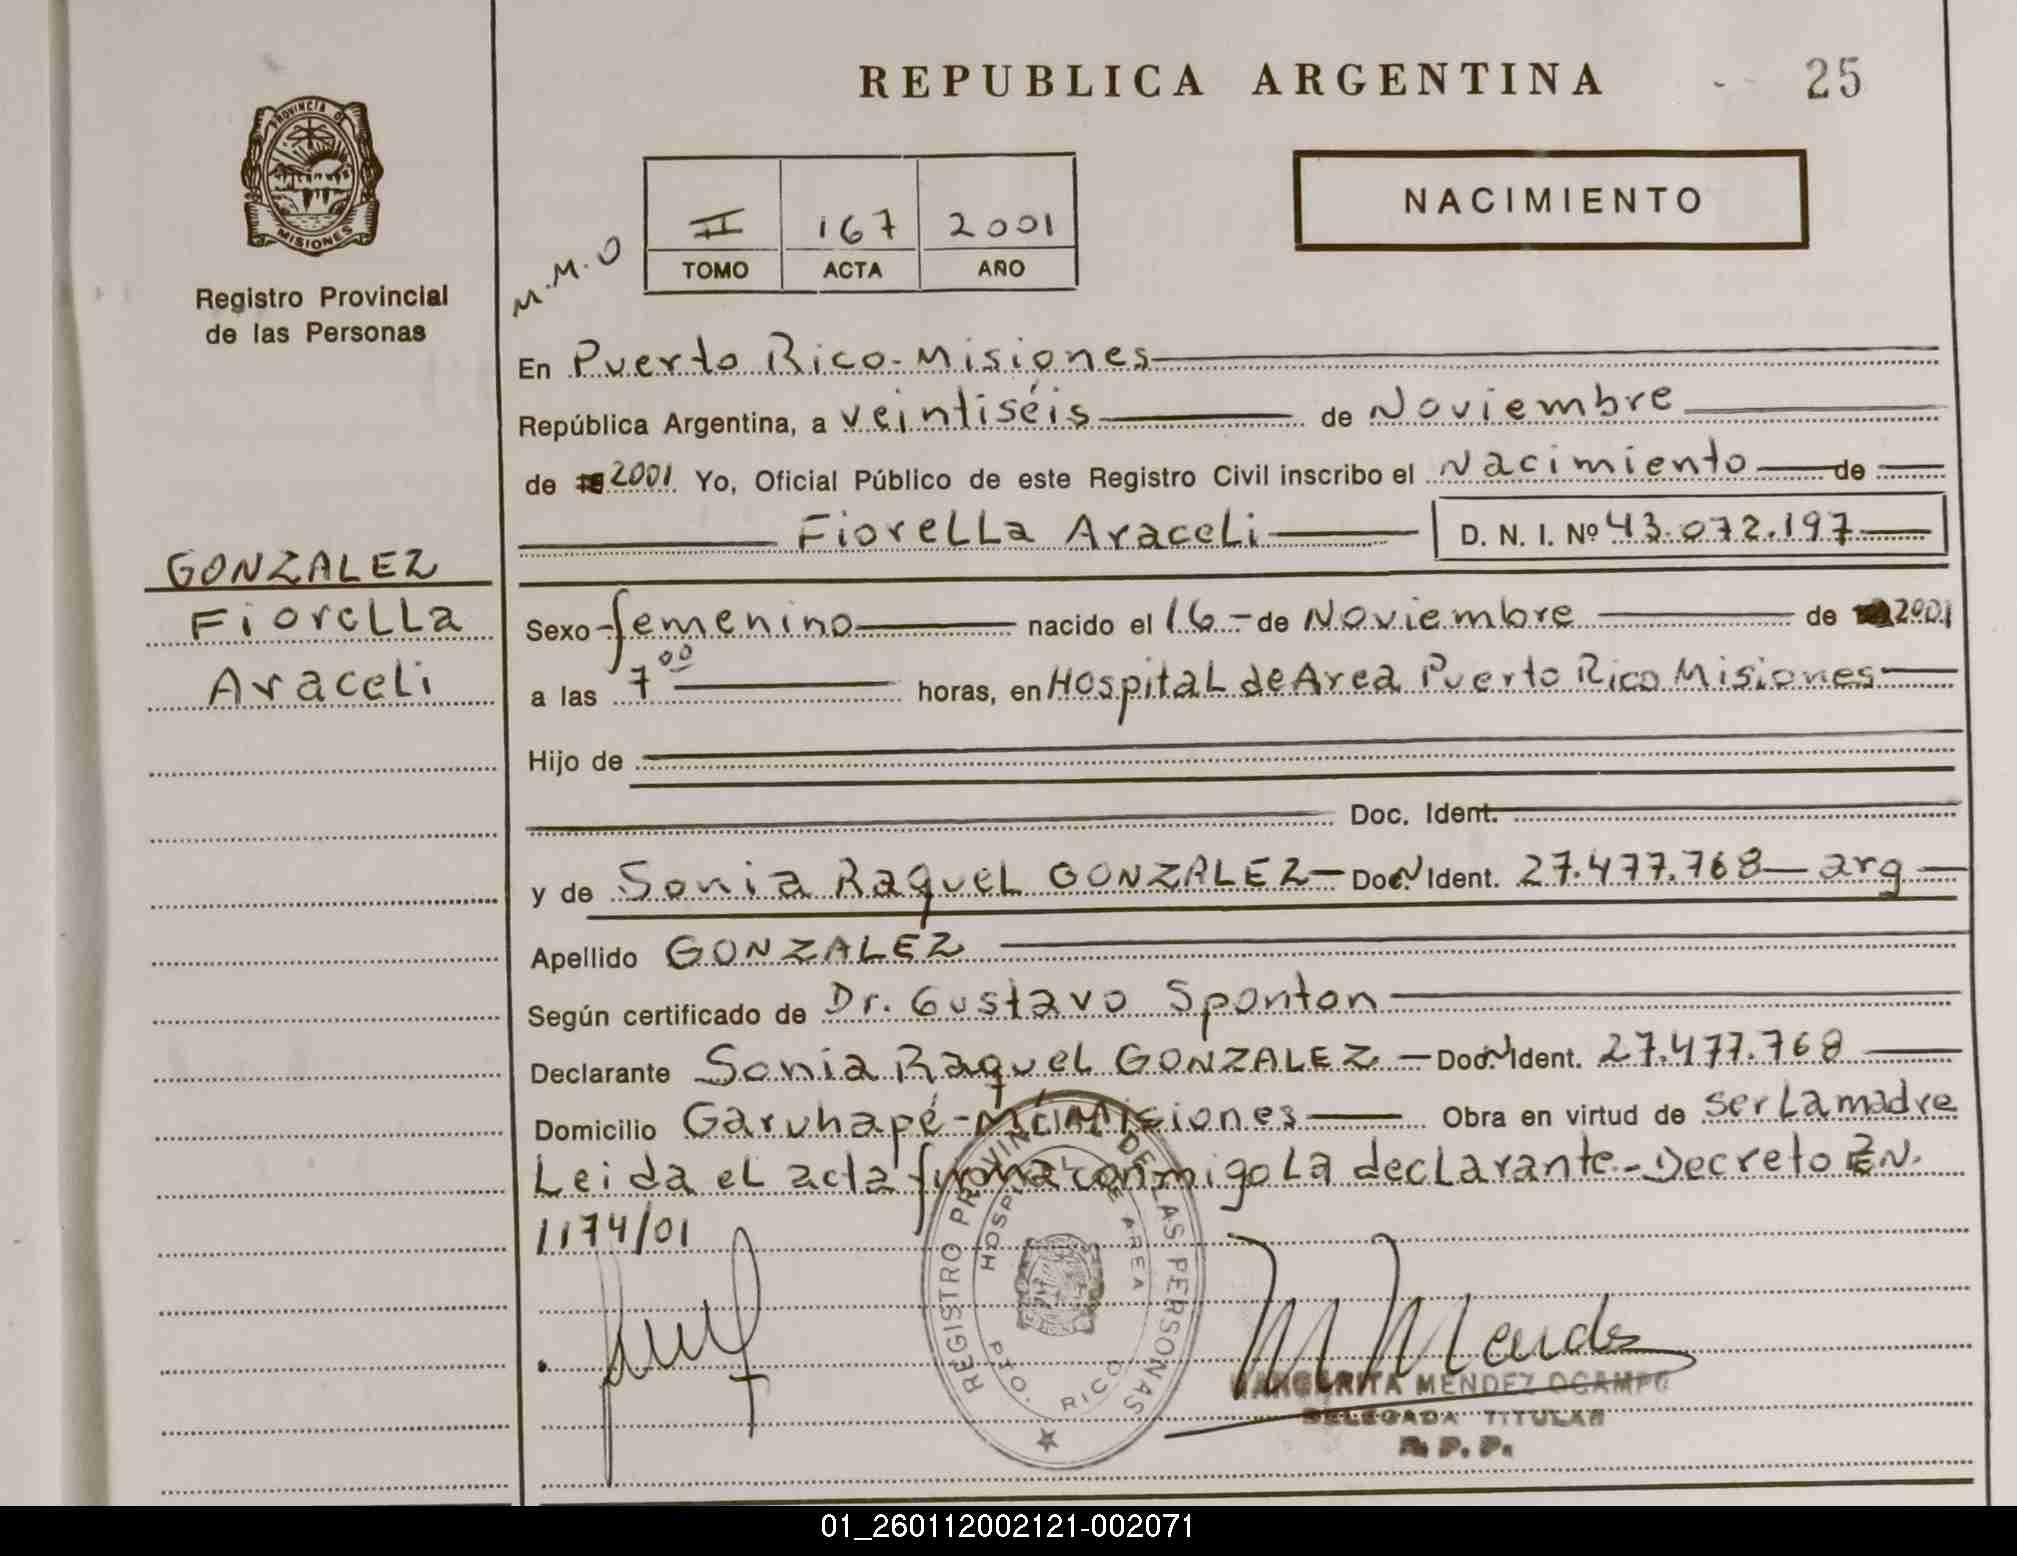 REPUBLICA ARGENTINA - - 25
PROVINCIA DE MISIONES
Registro Provincial
de las Personas
NACIMIENTO
II 167 2001
TOMO ACTA AÑO
M.M.O
En Puerto Rico-Misiones
República Argentina, a veintiséis de Noviembre
de 2001 Yo, Oficial Público de este Registro Civil inscribo el Nacimiento de
Fiorella Araceli D. N. I. Nº 43.072.197
GONZALEZ
Fiorella
Araceli
Sexo femenino nacido el 16 - de Noviembre de 2001
a las 7 00 horas, en Hospital de Area Puerto Rico Misiones
Hijo de
Doc. Ident.
y de Sonia Raquel GONZALEZ - Doc. Ident. 27.477.768 - arg
Apellido GONZALEZ
Según certificado de Dr. Gustavo Sponton
Declarante Sonia Raquel GONZALEZ - Doc. Ident. 27.477.768
Domicilio Garuhapé - Misiones Obra en virtud de ser La madre
Leida el acta firma conmigo La declarante - Decreto
1174/01
REGISTRO PROVINCIAL DE LAS PERSONAS
HOSPITAL DE AREA
PTO. RICO
M Mendez
MARGARITA MENDEZ OCAMPO
DELEGADA TITULAR
R. P. P.
01_260112002121-002071